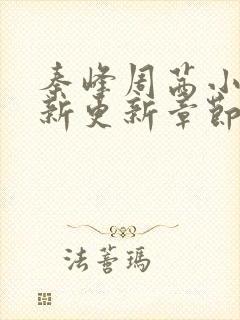 秦峰周茜小
新更新章節
法蒼瑪